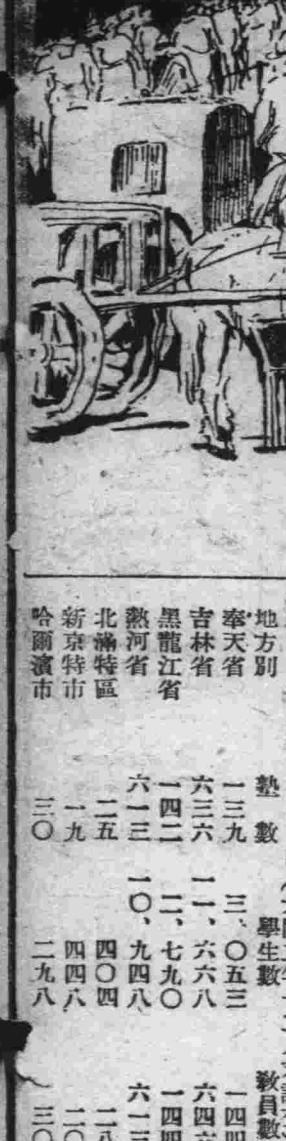 地方別 塾數 學生數 敎員數
奉天省 一三九 三、〇五三
吉林省 六三六 一一、六六八
黑龍江省 一四二 二、七九〇
熱河省 六一三 一〇、九四八
北滿特區 二五 四〇四
新京特市 一九 四四八
哈爾濱市 三〇 二九八